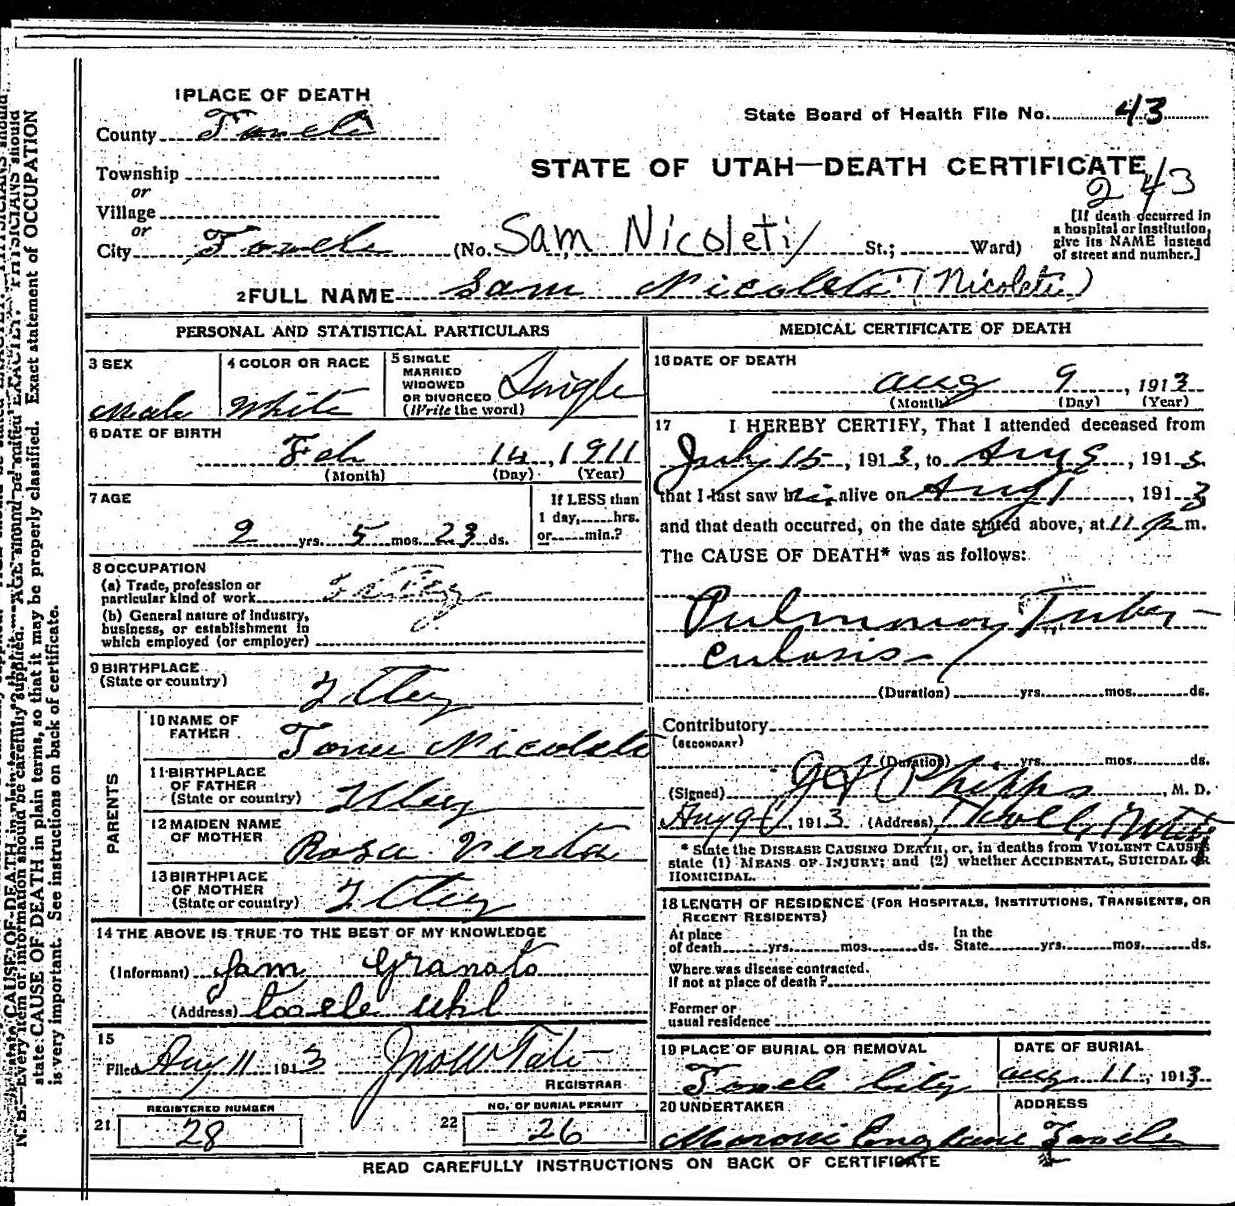 1 PLACE OF DEATH
County Tooele
State Board of Health File No. 43
Township
or
Village
or
City Tooele
STATE OF UTAH—DEATH CERTIFICATE
243
(No. Sam Nicoleti St.; Ward)
[If death occurred in
a hospital or institution,
give its NAME instead
of street and number.]
2 FULL NAME Sam Nicoleti (Nicoleti)
PERSONAL AND STATISTICAL PARTICULARS
3 SEX
Male
4 COLOR OR RACE
White
5 SINGLE
MARRIED
WIDOWED
OR DIVORCED
(Write the word)
Single
6 DATE OF BIRTH
Feb 14, 1911
(Month) (Day) (Year)
7 AGE
2 yrs. 5 mos. 23 ds.
If LESS than
1 day, hrs.
or min.?
8 OCCUPATION
(a) Trade, profession or
particular kind of work
(b) General nature of industry,
business, or establishment in
which employed (or employer)
9 BIRTHPLACE
(State or country)
Itley
PARENTS
10 NAME OF
FATHER
Tony Nicoleti
11 BIRTHPLACE
OF FATHER
(State or country) Itley
12 MAIDEN NAME
OF MOTHER
Rosa Verta
13 BIRTHPLACE
OF MOTHER
(State or country) Itley
14 THE ABOVE IS TRUE TO THE BEST OF MY KNOWLEDGE
(Informant) Sam Granato
(Address) Tooele Utah
15
Filed Aug 11 1913 Jno W Tate
REGISTRAR
REGISTERED NUMBER
21 28
NO. OF BURIAL PERMIT
22 26
MEDICAL CERTIFICATE OF DEATH
16 DATE OF DEATH
Aug 9, 1913
(Month) (Day) (Year)
17 I HEREBY CERTIFY, That I attended deceased from
July 15, 1913, to Aug 9, 1913
that I last saw him alive on Aug 1, 1913
and that death occurred, on the date stated above, at 11 P m.
The CAUSE OF DEATH* was as follows:
Pulmonary Tuber-
culosis
(Duration) yrs. mos. ds.
Contributory
(SECONDARY)
(Duration) yrs. mos. ds.
(Signed) Phipps, M. D.
Aug 9, 1913 (Address) Tooele Utah
* State the DISEASE CAUSING DEATH, or, in deaths from VIOLENT CAUSES
state (1) MEANS OF INJURY; and (2) whether ACCIDENTAL, SUICIDAL OR
HOMICIDAL.
18 LENGTH OF RESIDENCE (FOR HOSPITALS, INSTITUTIONS, TRANSIENTS, OR
RECENT RESIDENTS)
At place
of death yrs. mos. ds.
In the
State yrs. mos. ds.
Where was disease contracted.
If not at place of death?
Former or
usual residence
19 PLACE OF BURIAL OR REMOVAL
Tooele City
DATE OF BURIAL
Aug 11, 1913
20 UNDERTAKER
Moroni
ADDRESS
Tooele
READ CAREFULLY INSTRUCTIONS ON BACK OF CERTIFICATE
N. B.—Every item of information should be carefully supplied. AGE should be stated EXACTLY. PHYSICIANS should
state CAUSE OF DEATH in plain terms, so that it may be properly classified. Exact statement of OCCUPATION
is very important. See instructions on back of certificate.